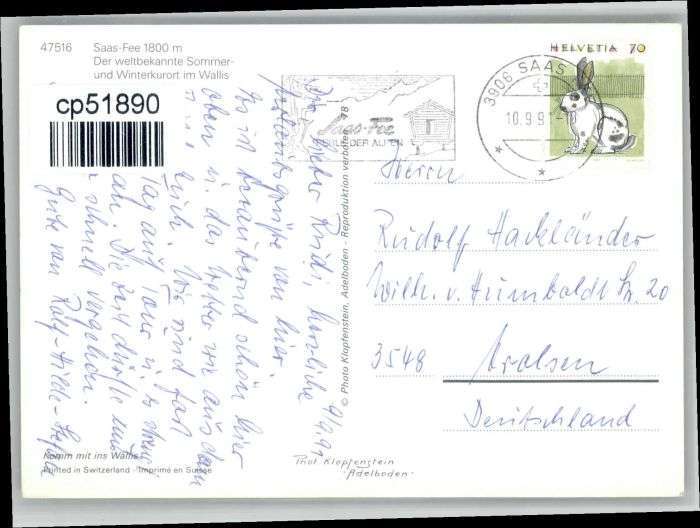 47516 Saas-Fee 1800 m
Der weltbekannte Sommer-
und Winterkurort im Wallis
cp51890
HELVETIA 70
3906 SAAS
10.9.9
Saas-Fee
DER ALPEN
Herrn
Rudolf Hackländer
Wilh. v. Humboldt Str. 20
3548 Arolsen
Deutschland
© Photo Klopfenstein, Adelboden - Reproduktion verboten 78
Lieber Rudi, herzliche
von hier.
Es ist bezaubernd schön hier
oben u. das Wetter wie aus dem
Wir sind fast
Tag auf Tour u.
an. Die Zeit dürfte nur
schnell vergehen.
Gute von Rolf-Hilde-
Komm mit ins Wallis
Printed in Switzerland - Imprimé en Suisse
Phot Klopfenstein
Adelboden